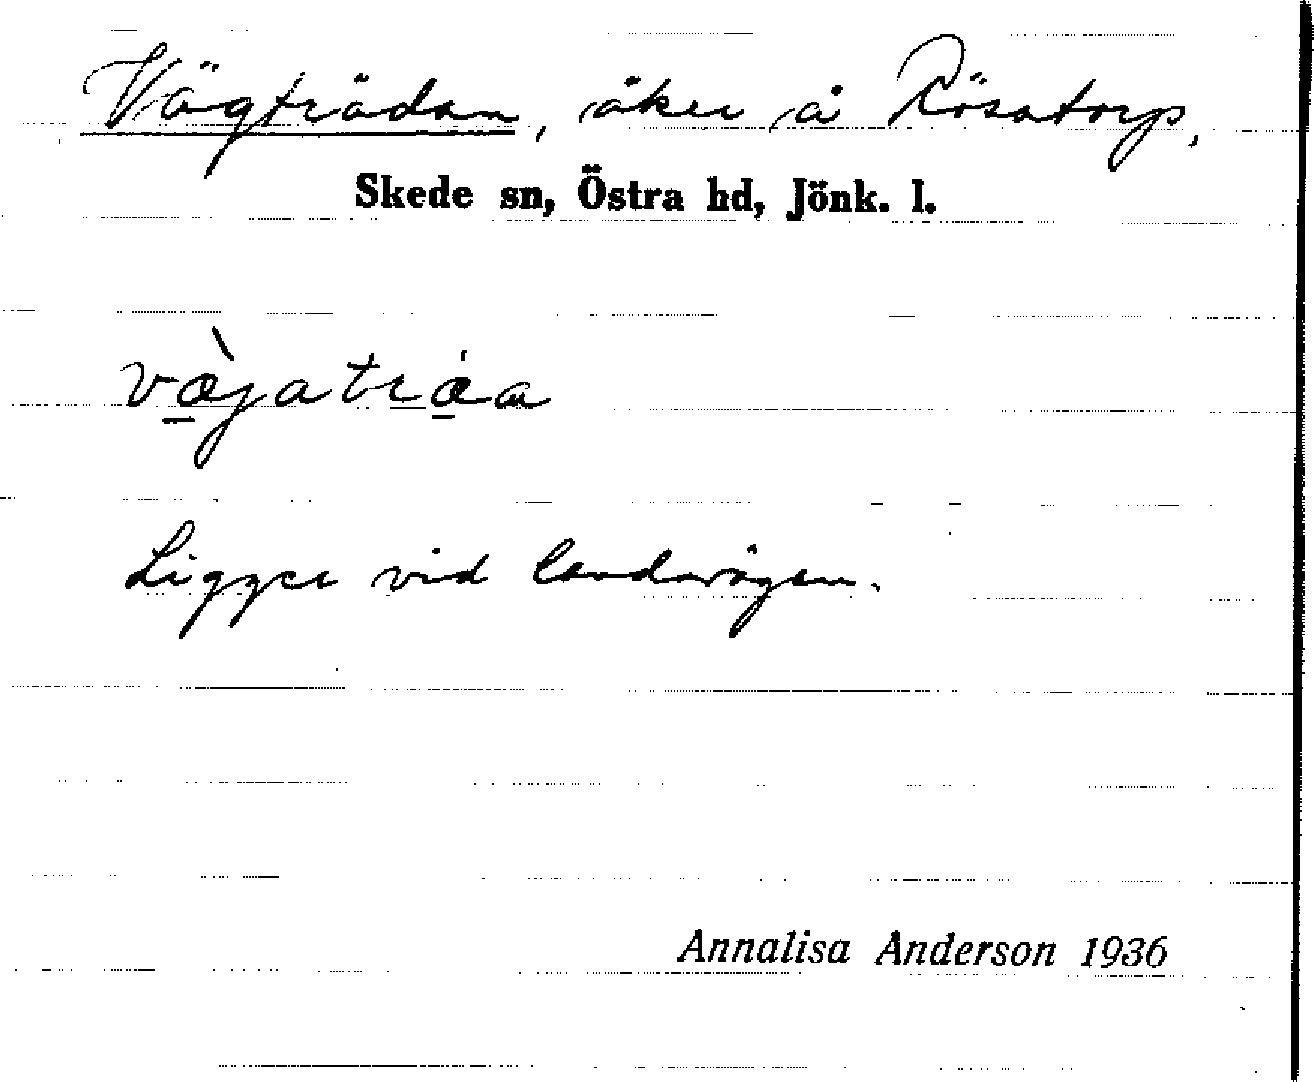 Vägträdan, åker å Rösatorp,
Skede sn, Östra hd, Jönk. l.
væ̀jatræ̇a
Ligger vid landsvägen.
Annalisa Anderson 1936